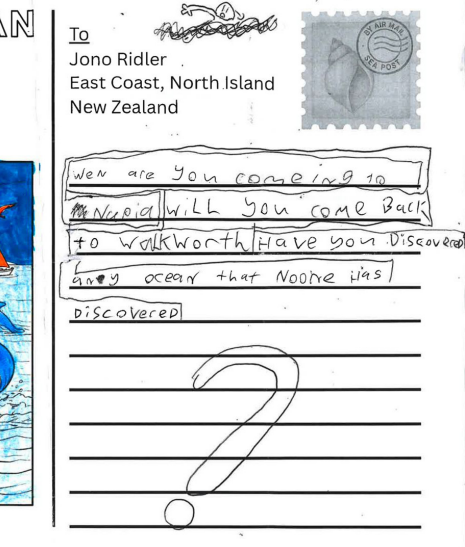 AN
To
Jono Ridler
East Coast, North Island
New Zealand
BY AIR MAIL
SEA POST
wen are you comeing to
Nupia will you come Back
to walkworth Have you Discovered
any ocean that Noone Has
DiscovereD
?